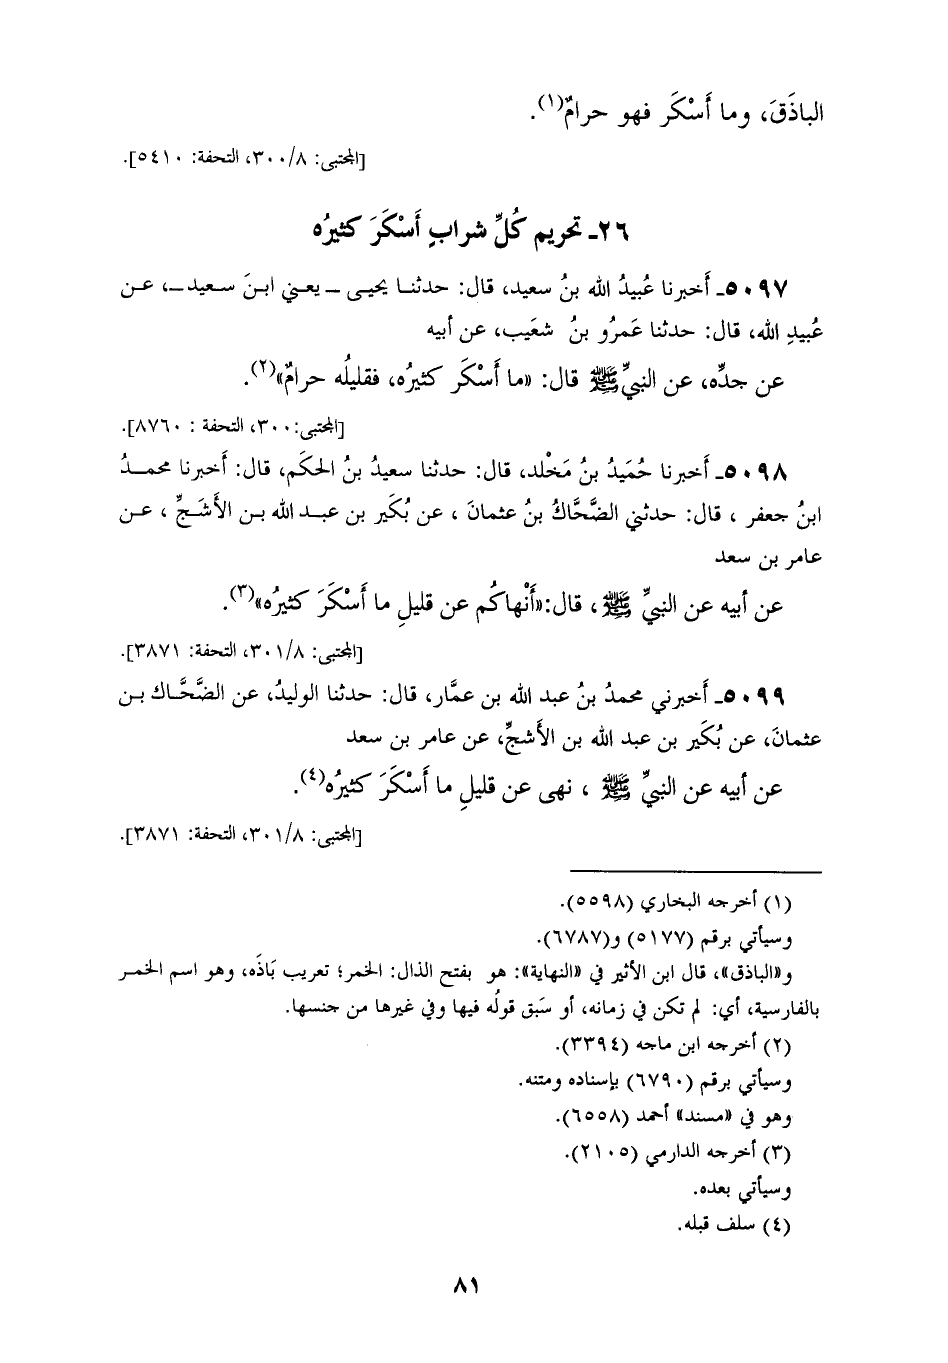 الباذَقَ، وما أَسْكَر فهو حرامٌ(١).
[المجتبى: ٣٠٠/٨، التحفة: ٥٤١٠].
٢٦ـ تحريم كُلِّ شرابٍ أَسْكَرَ كثيرُه
٥٠٩٧ـ أَخبرنا عُبيدُ الله بنُ سعيد، قال: حدثنا يحيى ــ يعني ابنَ سعيد ــ، عن
عُبيدِ الله، قال: حدثنا عَمرُو بنُ شعَيب، عن أَبيه
عن جدِّه، عن النبيِّ ﷺ قال: «ما أَسْكَر كثيرُه، فقليلُه حرامٌ»(٢).
[المجتبى:٣٠٠، التحفة : ٨٧٦٠].
٥٠٩٨ـ أَخبرنا حُمَيدُ بنُ مَخْلد، قال: حدثنا سعيدُ بنُ الحكَم، قال: أَخبرنا محمدُ
ابنُ جعفر ، قال: حدثني الضَّحَّاكُ بنُ عثمانَ ، عن بُكَير بن عبد الله بن الأَشَجِّ ، عن
عامر بن سعد
عن أبيه عن النبيِّ ﷺ ، قال:«أَنْهاكُم عن قليلِ ما أَسْكَرَ كثيرُه»(٣).
[المجتبى: ٣٠١/٨، التحفة: ٣٨٧١].
٥٠٩٩ـ أَخبرني محمدُ بنُ عبد الله بن عمَّار، قال: حدثنا الوليدُ، عن الضَّحَّاك بن
عثمانَ، عن بُكَير بن عبد الله بن الأَشجِّ، عن عامر بن سعد
عن أبيه عن النبيِّ ﷺ ، نهى عن قليلِ ما أَسْكَرَ كثيرُه(٤).
[المجتبى: ٣٠١/٨، التحفة: ٣٨٧١].
(١) أخرجه البخاري (٥٥٩٨).
وسيأتي برقم (٥١٧٧) و(٦٧٨٧).
و«الباذق»، قال ابن الأثير في «النهاية»: هو بفتح الذال: الخمر؛ تعريب بَاذَه، وهو اسم الخمر
بالفارسية، أي: لم تكن في زمانه، أو سَبق قولُه فيها وفي غيرها من جنسها.
(٢) أخرجه ابن ماجه (٣٣٩٤).
وسيأتي برقم (٦٧٩٠) بإسناده ومتنه.
وهو في «مسند» أحمد (٦٥٥٨).
(٣) أخرجه الدارمي (٢١٠٥).
وسيأتي بعده.
(٤) سلف قبله.
٨١